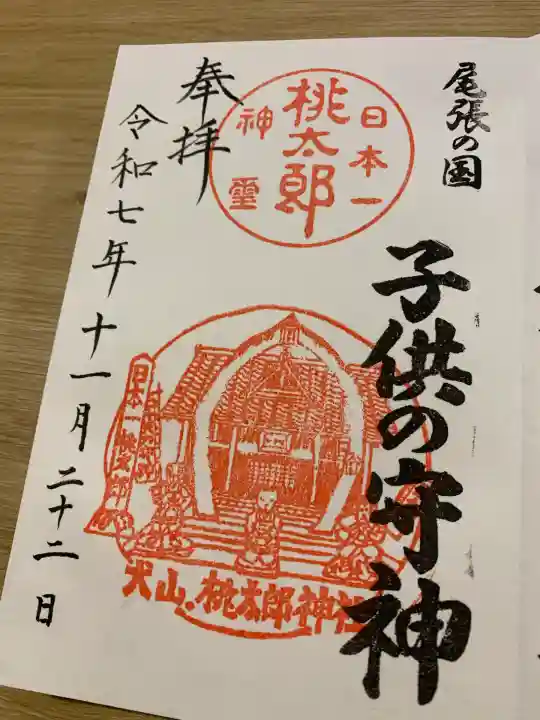 尾張の国
子供の守神
日本一
桃太郎
神霊
奉拝
令和七年十一月二十二日
日本一桃太郎
犬山.桃太郎神社